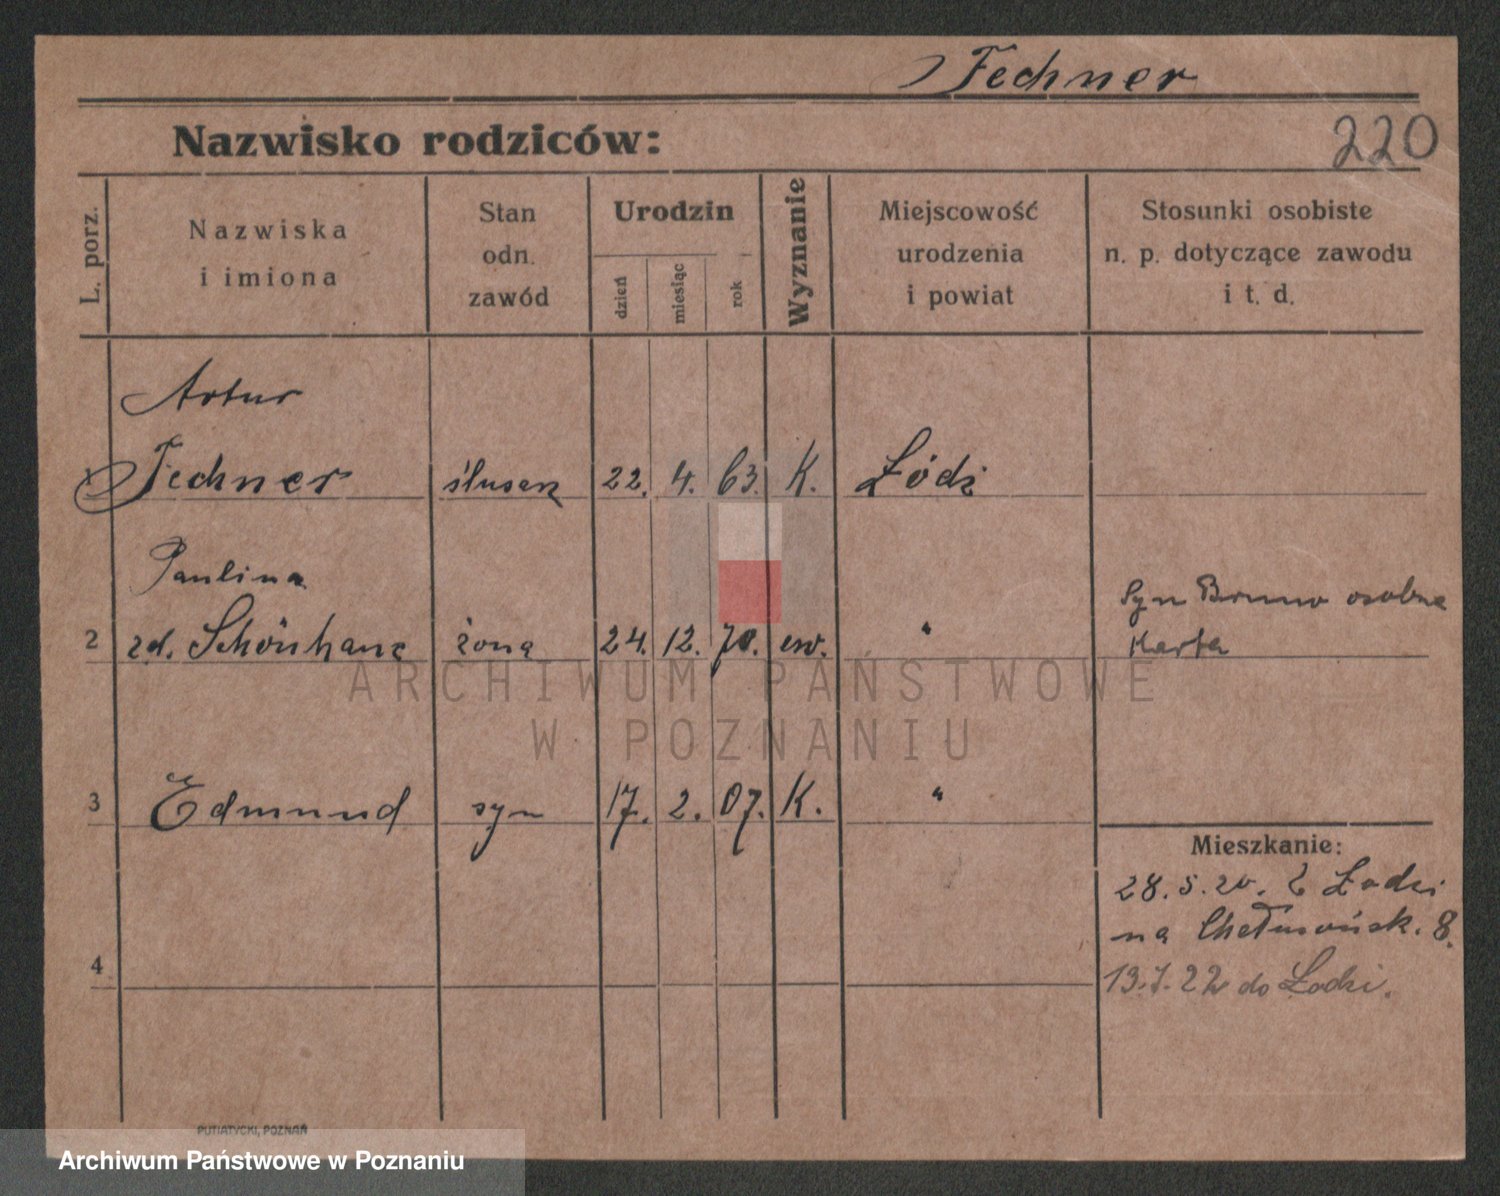 Fechner
Nazwisko rodziców:
220
L. porz.
Nazwiska
i imiona
Stan
odn.
zawód
Urodzin
dzień
miesiąc
rok
Wyznanie
Miejscowość
urodzenia
i powiat
Stosunki osobiste
n. p. dotyczące zawodu
i t. d.
Artur
1 Fechner ślusarz 22. 4. 63. K. Łódź
Paulina
2 zd. żona 24. 12. 70. ew. "
Syn Bruno osobna
Karta
3 Edmund syn 17. 2. 07. K. "
Mieszkanie:
28.5.20. z Łodzi
na 8.
4
19.7.22 do Łodzi.
ARCHIWUM PAŃSTWOWE
W POZNANIU
PUTIATYCKI, POZNAŃ
Archiwum Państwowe w Poznaniu